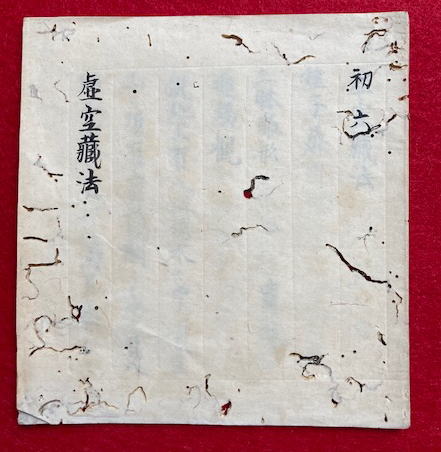 初六
虚空藏法